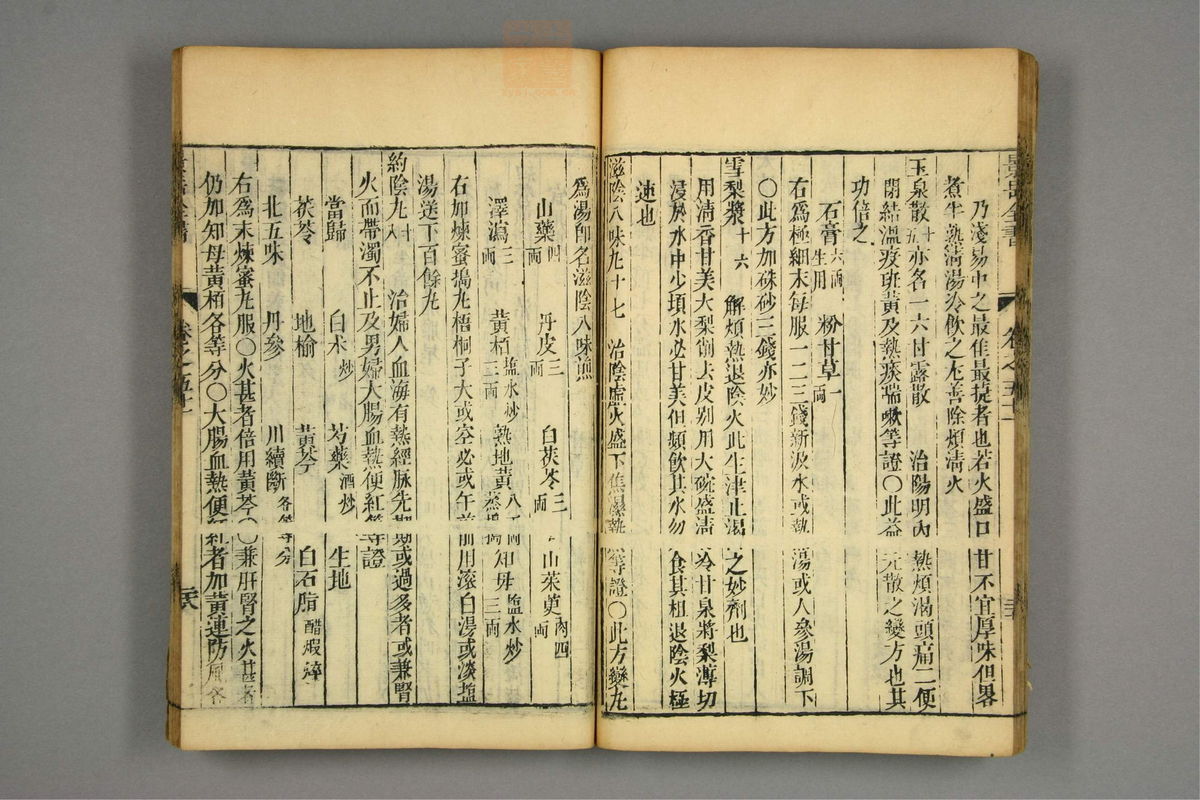 乃淺易中之最佳最捷者也若火盛口甘不宜厚味但畧
煮半熟清湯冷飲之尤善除煩清火
玉泉散十五亦名一六甘露散　治陽明內熱煩渴頭痛二便
閉結溫疫斑黃及熱痰喘嗽等證〇此益元散之變方也其
功倍之
石膏六兩生用　粉甘草一兩
右爲極細末每服一二三錢新汲水或熱湯或人參湯調下
〇此方加硃砂三錢亦妙
雪梨漿十六　解煩熱退陰火此生津止渴之妙劑也
用清香甘美大梨削去皮別用大碗盛清冷甘泉將梨薄切
浸於水中少頃水必甘美但頻飲其水勿食其柤退陰火極
速也
滋陰八味丸十七　治陰虛火盛下焦濕熱等證〇此方變丸
爲湯即名滋陰八味煎
山藥四兩　丹皮三兩　白茯苓三兩　山茱萸肉四兩
澤瀉三兩　黃栢鹽水炒三兩　熟地黃八兩蒸搗　知母鹽水炒三兩
右加煉蜜搗丸梧桐子大或空心或午前用滚白湯或淡鹽
湯送下百餘丸
約陰丸十八　治婦人血海有熱經脉先期或過多者或兼腎
火而帶濁不止及男婦大腸血熱便紅等證
當歸　白朮炒　芍藥酒炒　生地
茯苓　地榆　黃芩　白石脂醋煅淬
北五味　丹參　川續斷各等分
右爲末煉蜜丸服〇火甚者倍用黃芩〇兼肝腎之火甚者
仍加知母黃栢各等分〇大腸血熱便紅者加黃連防風各